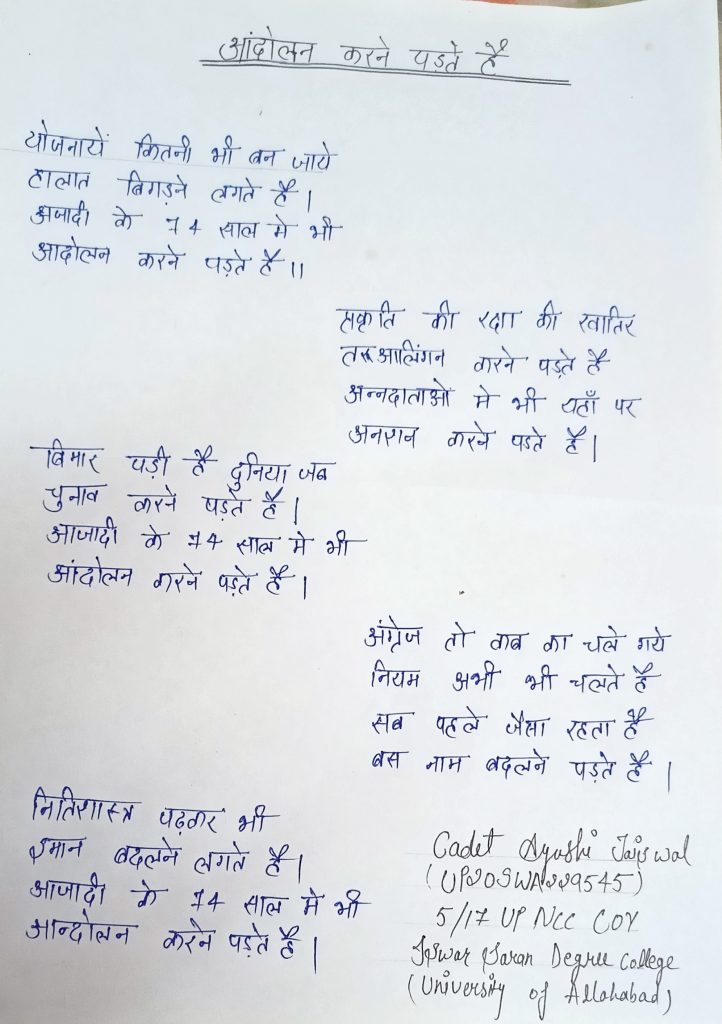 आंदोलन करने पड़ते है
योजनायें कितनी भी बन जाये
हालात बिगड़ने लगते है।
अजादी के 74 साल मे भी
आदोलन करने पड़ते है॥
प्रकृति की रक्षा की खातिर
तरूआलिंगन करने पड़ते है
अन्नदाताओ मे भी यहाँ पर
अनशन करने पडते है।
बिमार पड़ी है दुनिया जब
चुनाव करने पड़ते है।
आजादी के 74 साल मे भी
आंदोलन करने पड़ते है।
अंग्रेज तो कब का चले गये
नियम अभी भी चलते है
सब पहले जैसा रहता है
बस नाम बदलने पड़ते है।
नितिशास्त्र पढ़कर भी
इमान बदलने लगते है।
आजादी के 74 साल मे भी
आन्दोलन करने पड़ते है।
Cadet Ayushi Jaiswal
(UP20SWA229545)
5/17 UP NCC COY
Ishwar Saran Degree College
(University of Allahabad)